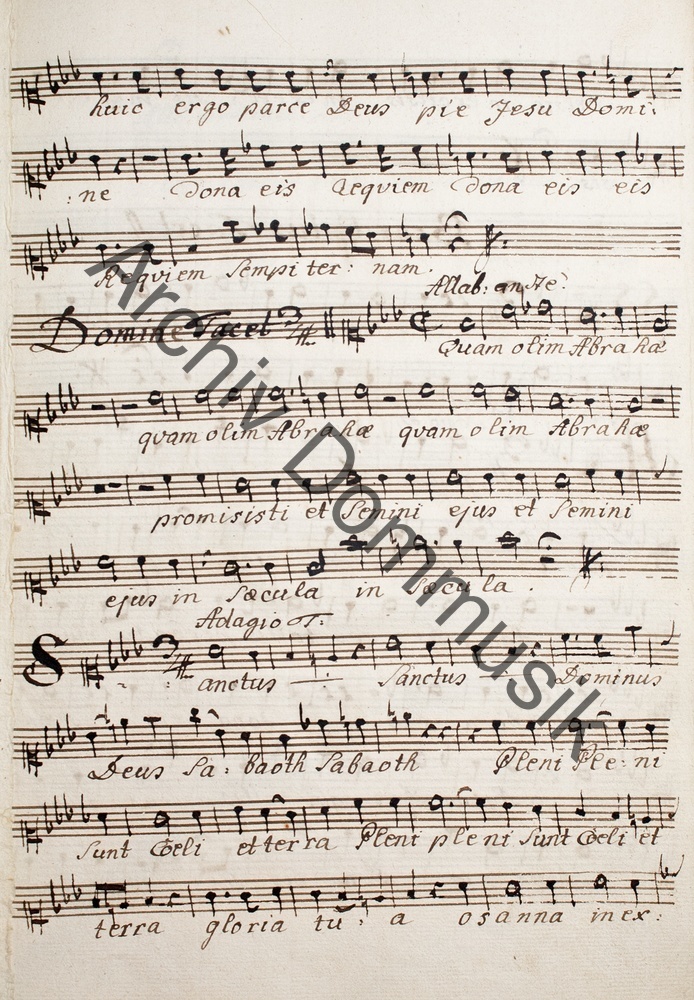 huic ergo parce Deus pie Jesu Domi:
:ne Dona eis Requiem Dona eis eis
Requiem sempiter: nam.
Allab:
Domine Tacet 3/4
Quam olim Abrahæ
quam olim Abrahæ quam olim Abrahæ
promisisti et Semini ejus et Semini
ejus in Sæcula in Sæcula.
Adagio
Sanctus Sanctus Dominus
Deus Sa: baoth Sabaoth Pleni Ple: ni
sunt Cœli et terra Pleni pleni sunt Cœli et
terra gloria tu: a osanna in ex:
Archiv Dommusik